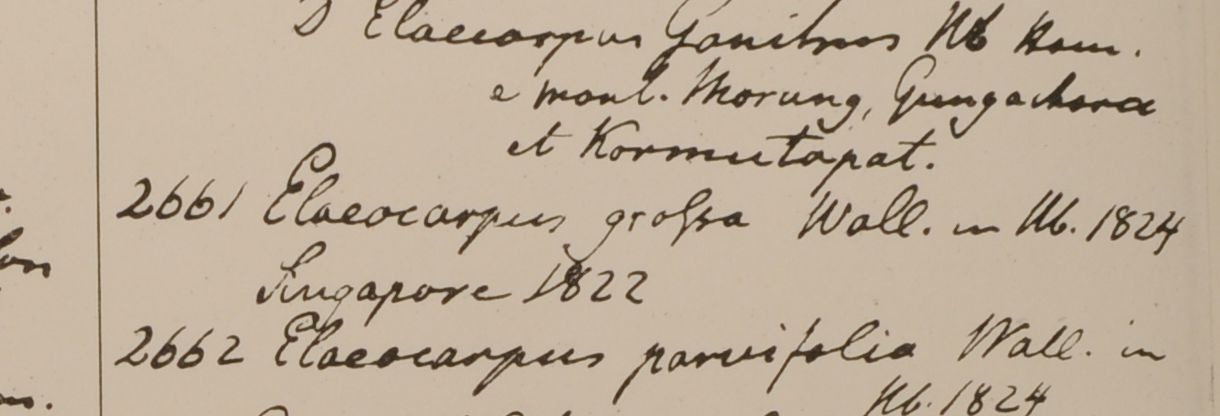 D Elaeocarpus Ganitrus Hb Ham.
e mont. Morung, Gungachora
et Kormutapat.
2661 Elaeocarpus grossa Wall. in Hb. 1824
Singapore 1822
2662 Elaeocarpus parvifolia Wall. in
Hb. 1824